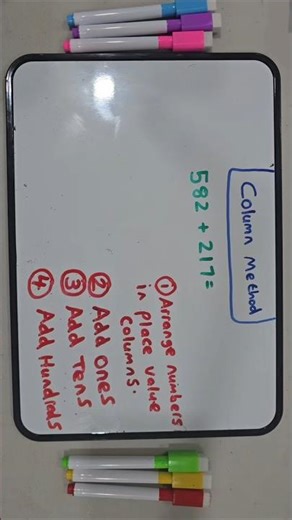 Column Method
582 + 217 =
① Arrange numbers
in place value
columns.
② Add Ones
③ Add Tens
④ Add Hundrads